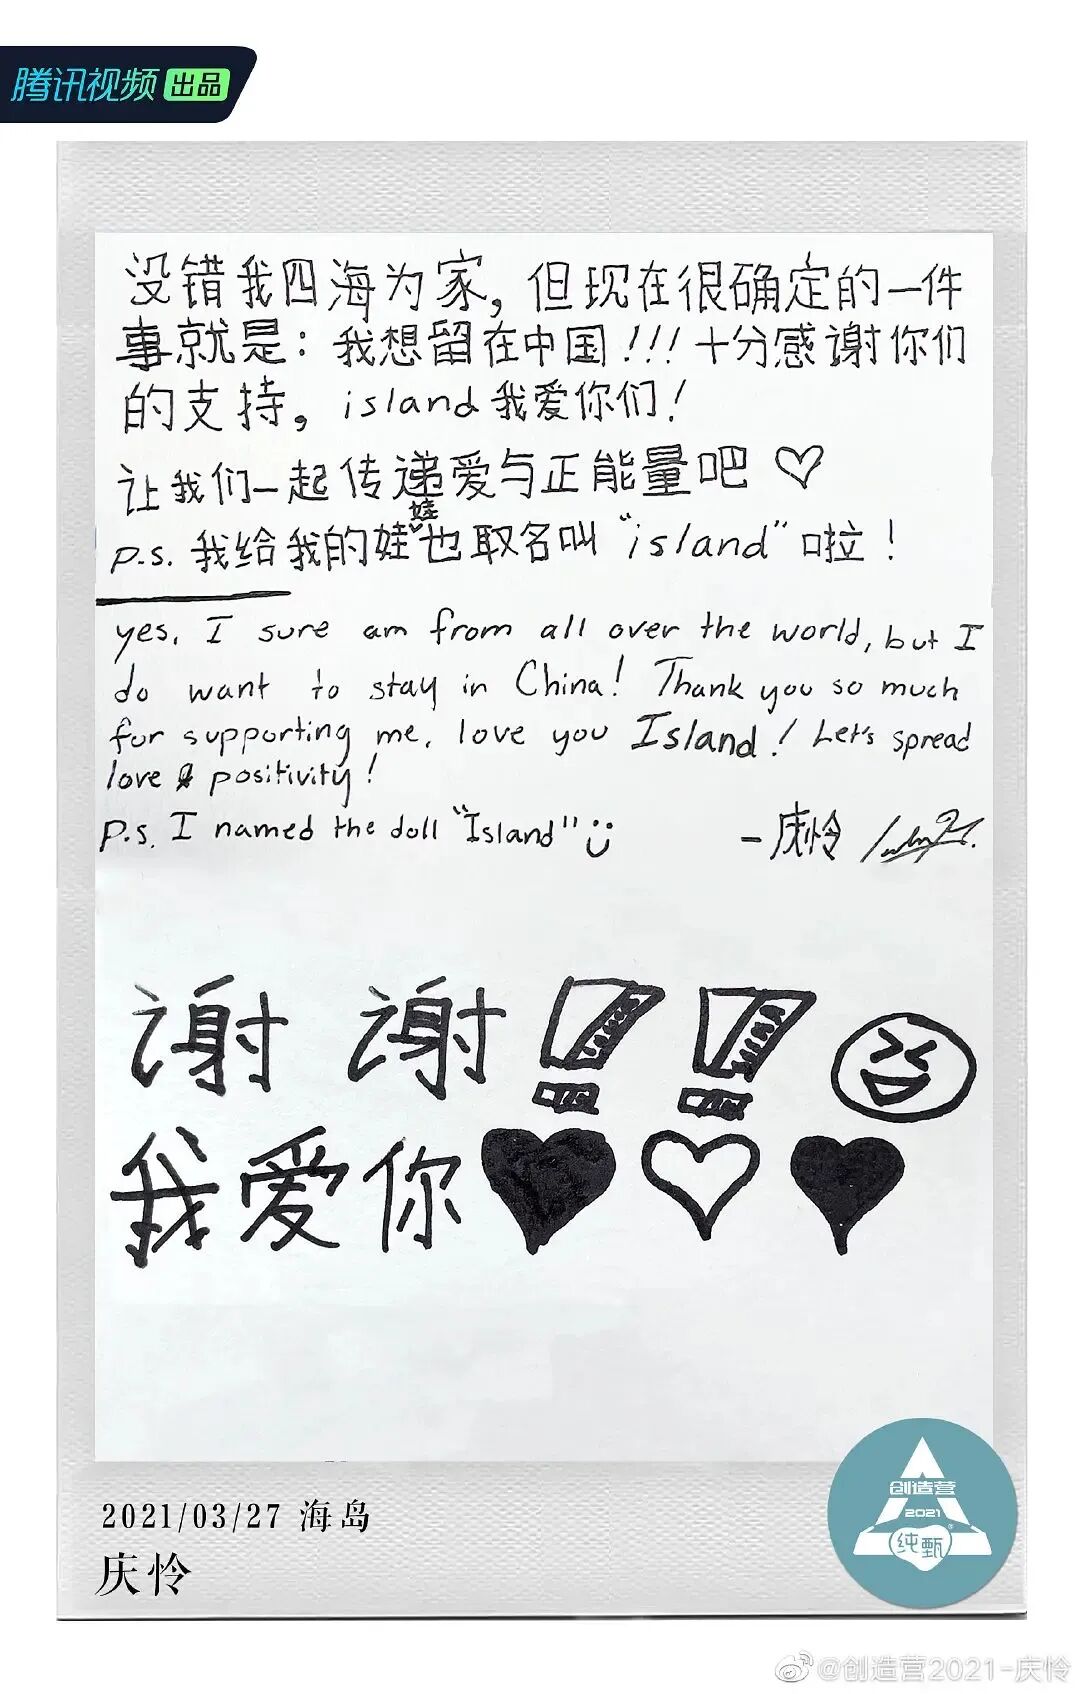 腾讯视频 出品
没错我四海为家，但现在很确定的一件
事就是：我想留在中国！！！十分感谢你们
的支持，island我爱你们！
让我们一起传递爱与正能量吧♡
p.s. 我给我的娃娃也取名叫“island”啦！
yes, I sure am from all over the world, but I
do want to stay in China! Thank you so much
for supporting me, love you Island! Let's spread
love & positivity!
P.s. I named the doll "Island" :)
-庆怜
谢谢！！
我爱你♥♡♥
2021/03/27 海岛
庆怜
创造营
2021
纯甄
@创造营2021-庆怜